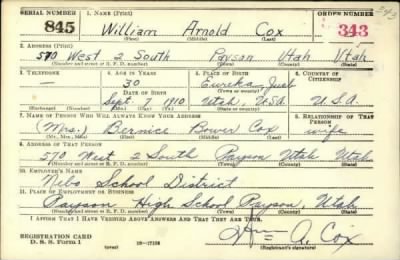 SERIAL NUMBER 1. NAME (Print) ORDER NUMBER
845 William Arnold Cox 343
(First) (Middle) (Last)
2. ADDRESS (Print)
570 West 2 South Payson Utah Utah
(Number and street or R. F. D. number) (Town) (County) (State)
3. TELEPHONE 4. AGE IN YEARS 5. PLACE OF BIRTH 6. COUNTRY OF CITIZENSHIP
— 30 Eureka, Juab
DATE OF BIRTH (Town or county)
Sept. 7, 1910 Utah, U.S.A. U.S.A.
(Exchange) (Number) (Mo.) (Day) (Yr.) (State or country)
7. NAME OF PERSON WHO WILL ALWAYS KNOW YOUR ADDRESS 8. RELATIONSHIP OF THAT PERSON
(Mrs.) Bernice Bower Cox wife
(Mr., Mrs., Miss) (First) (Middle) (Last)
9. ADDRESS OF THAT PERSON
570 West 2 South Payson Utah Utah
(Number and street or R. F. D. number) (Town) (County) (State)
10. EMPLOYER'S NAME
Nebo School District
11. PLACE OF EMPLOYMENT OR BUSINESS
Payson High School Payson, Utah
(Number and street or R. F. D. number) (Town) (County) (State)
I AFFIRM THAT I HAVE VERIFIED ABOVE ANSWERS AND THAT THEY ARE TRUE.
REGISTRATION CARD
D. S. S. Form 1 16—17105 Wm A. Cox
(Registrant's signature)